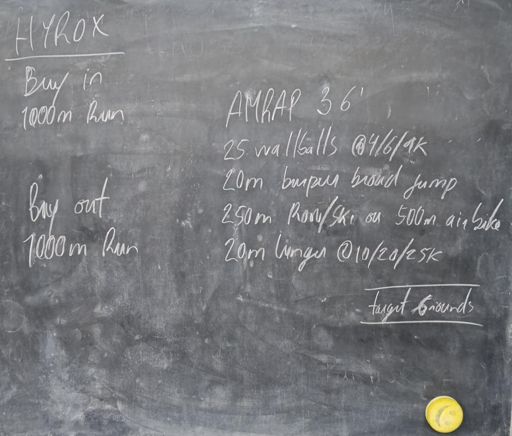 HYROX
Buy in
1000m Run
Buy out
1000m Run
AMRAP 36'
25 wallballs @4/6/9K
20m burpee broad jump
250m Row/Ski ou 500m air bike
20m lunges @10/20/25K
target 6 rounds